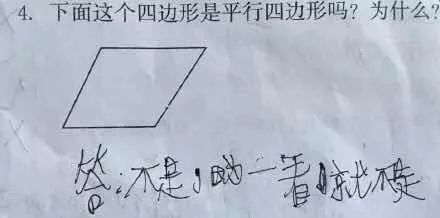 4. 下面这个四边形是平行四边形吗？为什么？
答：不是，一看就不是